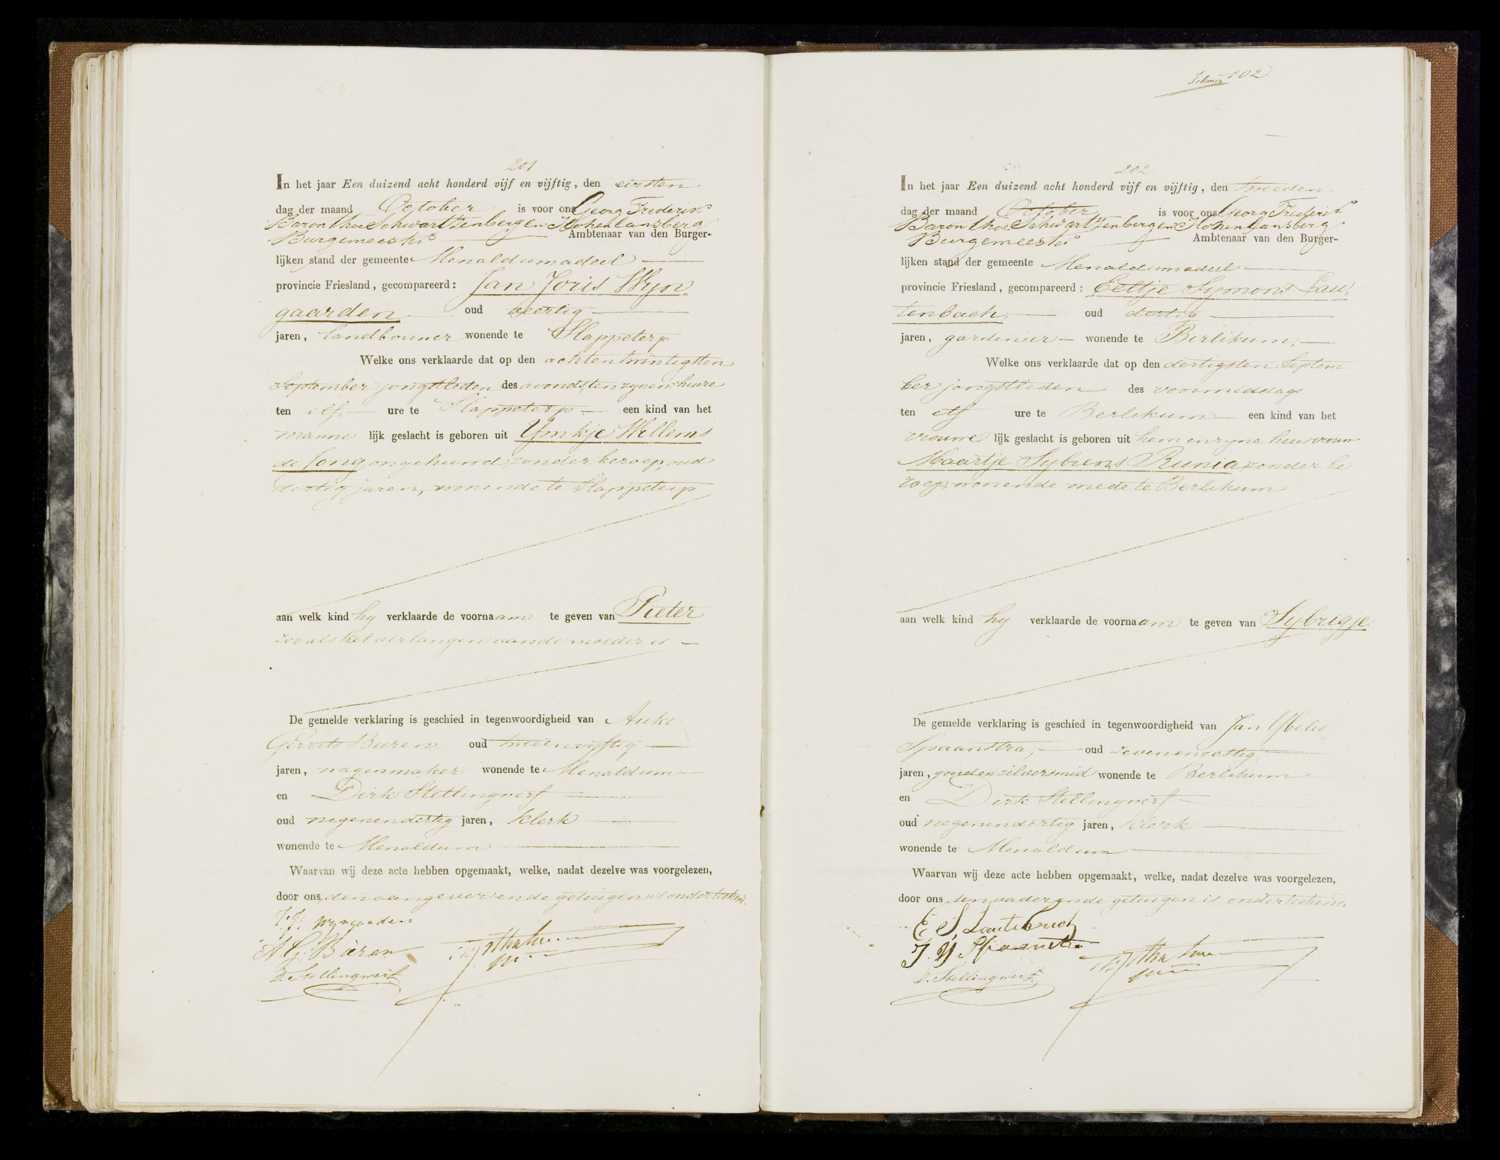 201
In het jaar Een duizend acht honderd vijf en vijftig, den eersten
dag der maand October is voor ons Georg Frederik
Baron thoe Schwartzenberg en Hohenlansberg
Burgemeester Ambtenaar van den Burger-
lijken stand der gemeente Menaldumadeel
provincie Friesland, gecompareerd: Jan Joris Wyn
gaarden oud veertig
jaren, landbouwer wonende te Slappeterp
Welke ons verklaarde dat op den achtentwintigsten
September jongstleden des avonds ten zynen huize
ten elf ure te Slappeterp een kind van het
manne lijk geslacht is geboren uit Ymkje Willems
de Jong ongehuwd, zonder beroep oud
dertig jaren, wonende te Slappeterp
aan welk kind hy verklaarde de voornaam te geven van Pieter
zooals het verlangen van de moeder is
De gemelde verklaring is geschied in tegenwoordigheid van Auke
Gerrits Buren oud tweeenvijftig
jaren, wagenmaker wonende te Menaldum
en Dirk Stellingwerf
oud negenendertig jaren, klerk
wonende te Menaldum
Waarvan wij deze acte hebben opgemaakt, welke, nadat dezelve was voorgelezen,
door ons, den aangever en de getuigen is onderteekend.
J. J. Wyngaarden
A G Buren
D. Stellingwerf
102
202
In het jaar Een duizend acht honderd vijf en vijftig, den tweeden
dag der maand October is voor ons Georg Frederik
Baron thoe Schwartzenberg en Hohenlansberg
Burgemeester Ambtenaar van den Burger-
lijken stand der gemeente Menaldumadeel
provincie Friesland, gecompareerd: Eeltje Symons Lau
tenbach, oud dertig
jaren, gardenier wonende te Berlikum,
Welke ons verklaarde dat op den dertigsten Septem
ber jongstleden des voormiddags
ten elf ure te Berlikum een kind van het
vrouwe lijk geslacht is geboren uit hem en zyne huisvrouw
Maartje Sybrens Runia zonder be
roep, wonende mede te Berlikum
aan welk kind hy verklaarde de voornaam te geven van Sybregje
De gemelde verklaring is geschied in tegenwoordigheid van Jan Ybeles
Spaanstra, oud zevenenveertig
jaren, goud en zilversmid wonende te Berlikum
en Dirk Stellingwerf
oud negenendertig jaren, klerk
wonende te Menaldum
Waarvan wij deze acte hebben opgemaakt, welke, nadat dezelve was voorgelezen,
door ons, den vader en de getuigen is onderteekend.
E S Lautenbach
J. Y. Spaanstra
D. Stellingwerf